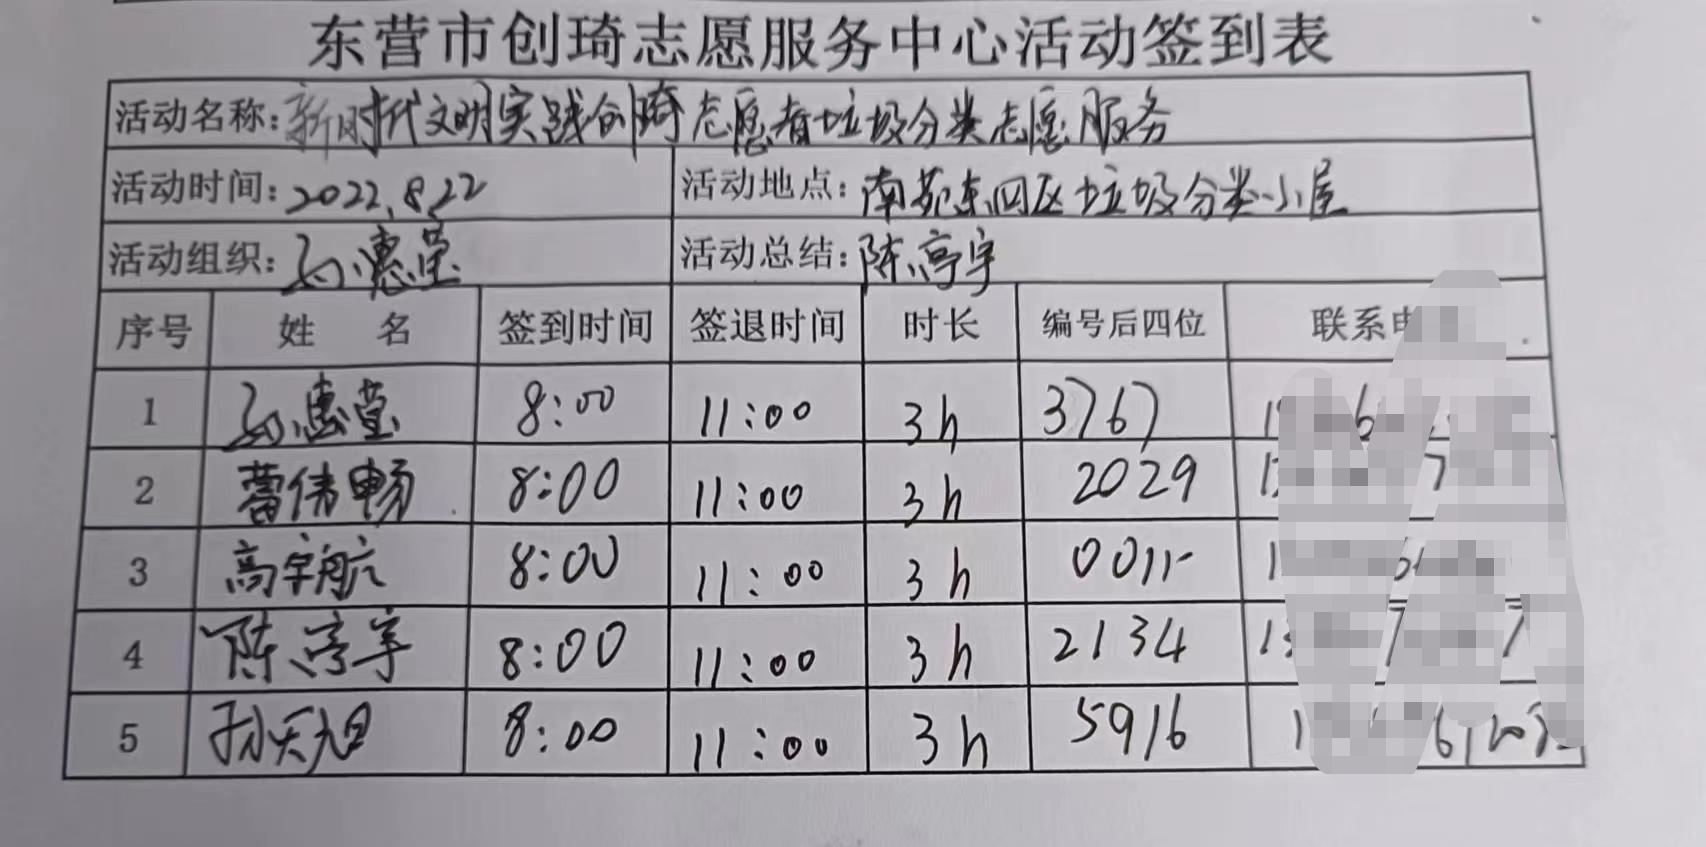 东营市创琦志愿服务中心活动签到表
活动名称：新时代文明实践创琦志愿者垃圾分类志愿服务
活动时间：2022.8.22 活动地点：南苑东四区垃圾分类小屋
活动组织：孙惠莹 活动总结：陈亭宇
序号 姓 名 签到时间 签退时间 时长 编号后四位 联系
1 孙惠莹 8:00 11:00 3h 3767
2 伟畅 8:00 11:00 3h 2029
3 高宇航 8:00 11:00 3h 0011
4 陈亭宇 8:00 11:00 3h 2134
5 孙天旭 8:00 11:00 3h 5916